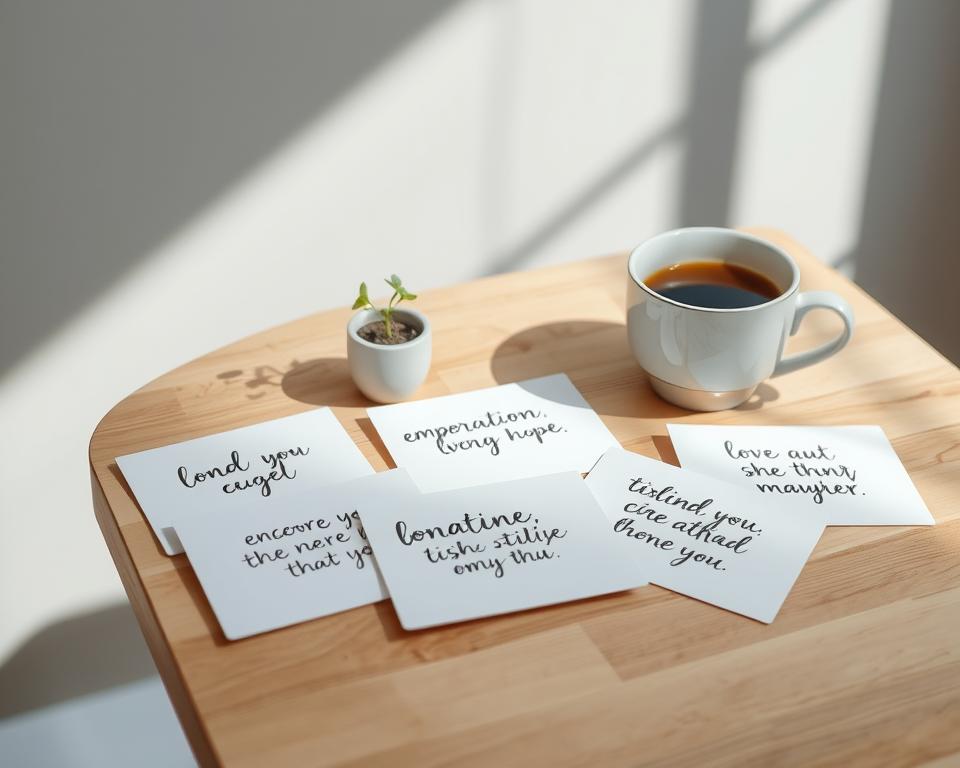 lond you
cugel
emporation,
livong hope.
love aut
she thny
mauyher.
encoore yo
the nere
that yo
lonatine,
tishe stilije
omy thu.
tislind you.
cire athad
fhone you.